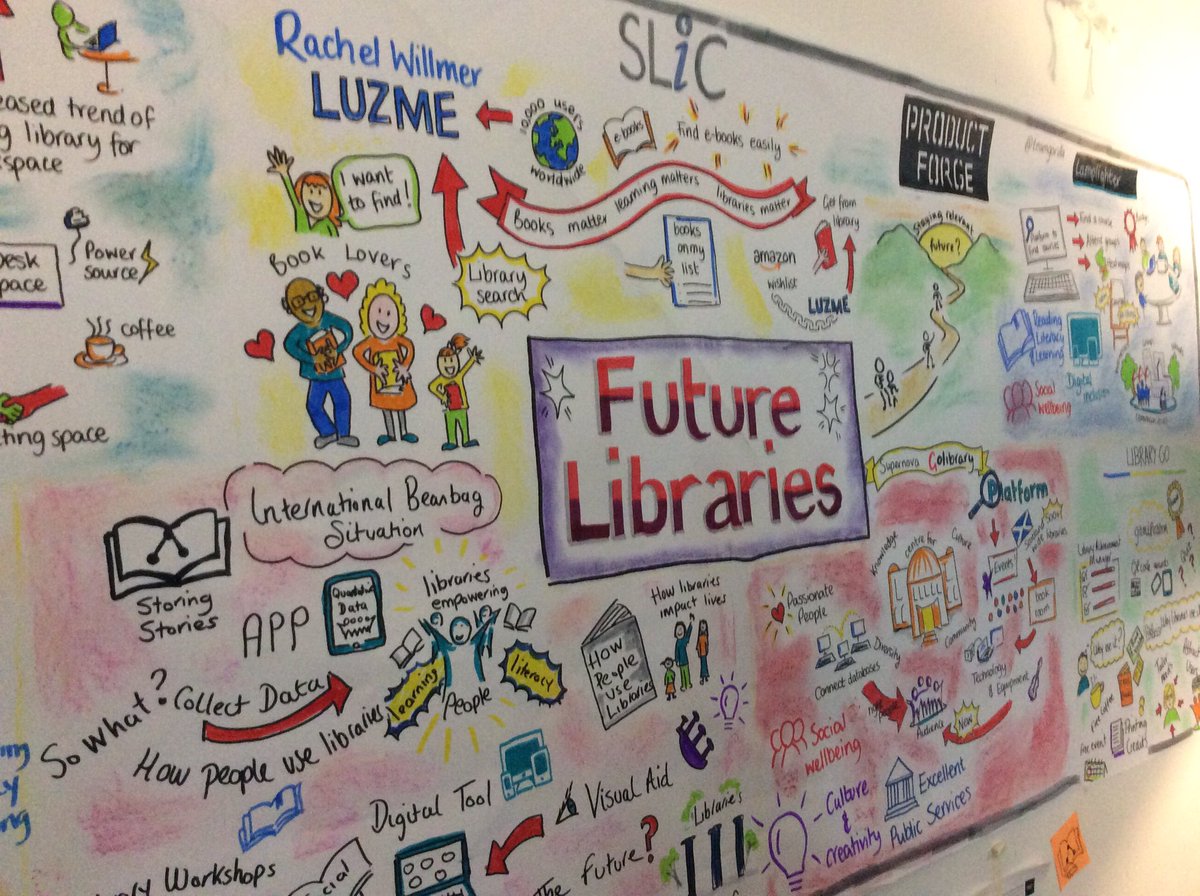 eased trend of
library for
space
Power
source
Desk
pace
coffee
ting space
SLiC
Rachel Willmer
LUZME
10,000 users
worldwide
e-books
Find e-books easily
I want
to find!
Books matter learning matters libraries matter
Book Lovers
Library
search
books
on my
list
Get from
library
amazon
wishlist
LUZME
PRODUCT
FORGE
Staying relevant
future?
Lamplighter
Reading
Literacy
Learning
Digital
inclusion
Social
wellbeing
Future
Libraries
International Beanbag
Situation
Storing
Stories
APP
Data
libraries
empowering
learning
literacy
People
So what?
Collect Data
How people use libraries
How
People
Use
Libraries
How libraries
impact lives
Digital Tool
Visual Aid
Workshops
The Future?
Libraries
Supernova Golibrary
Platform
Knowledge
centre for
Culture
Community
Events
book
room
libraries
Passionate
People
Diversity
Connect databases
Technology
& Equipment
Audience
Now
Social
wellbeing
Culture
&
creativity
Excellent
Public Services
LIBRARY GO
gamification